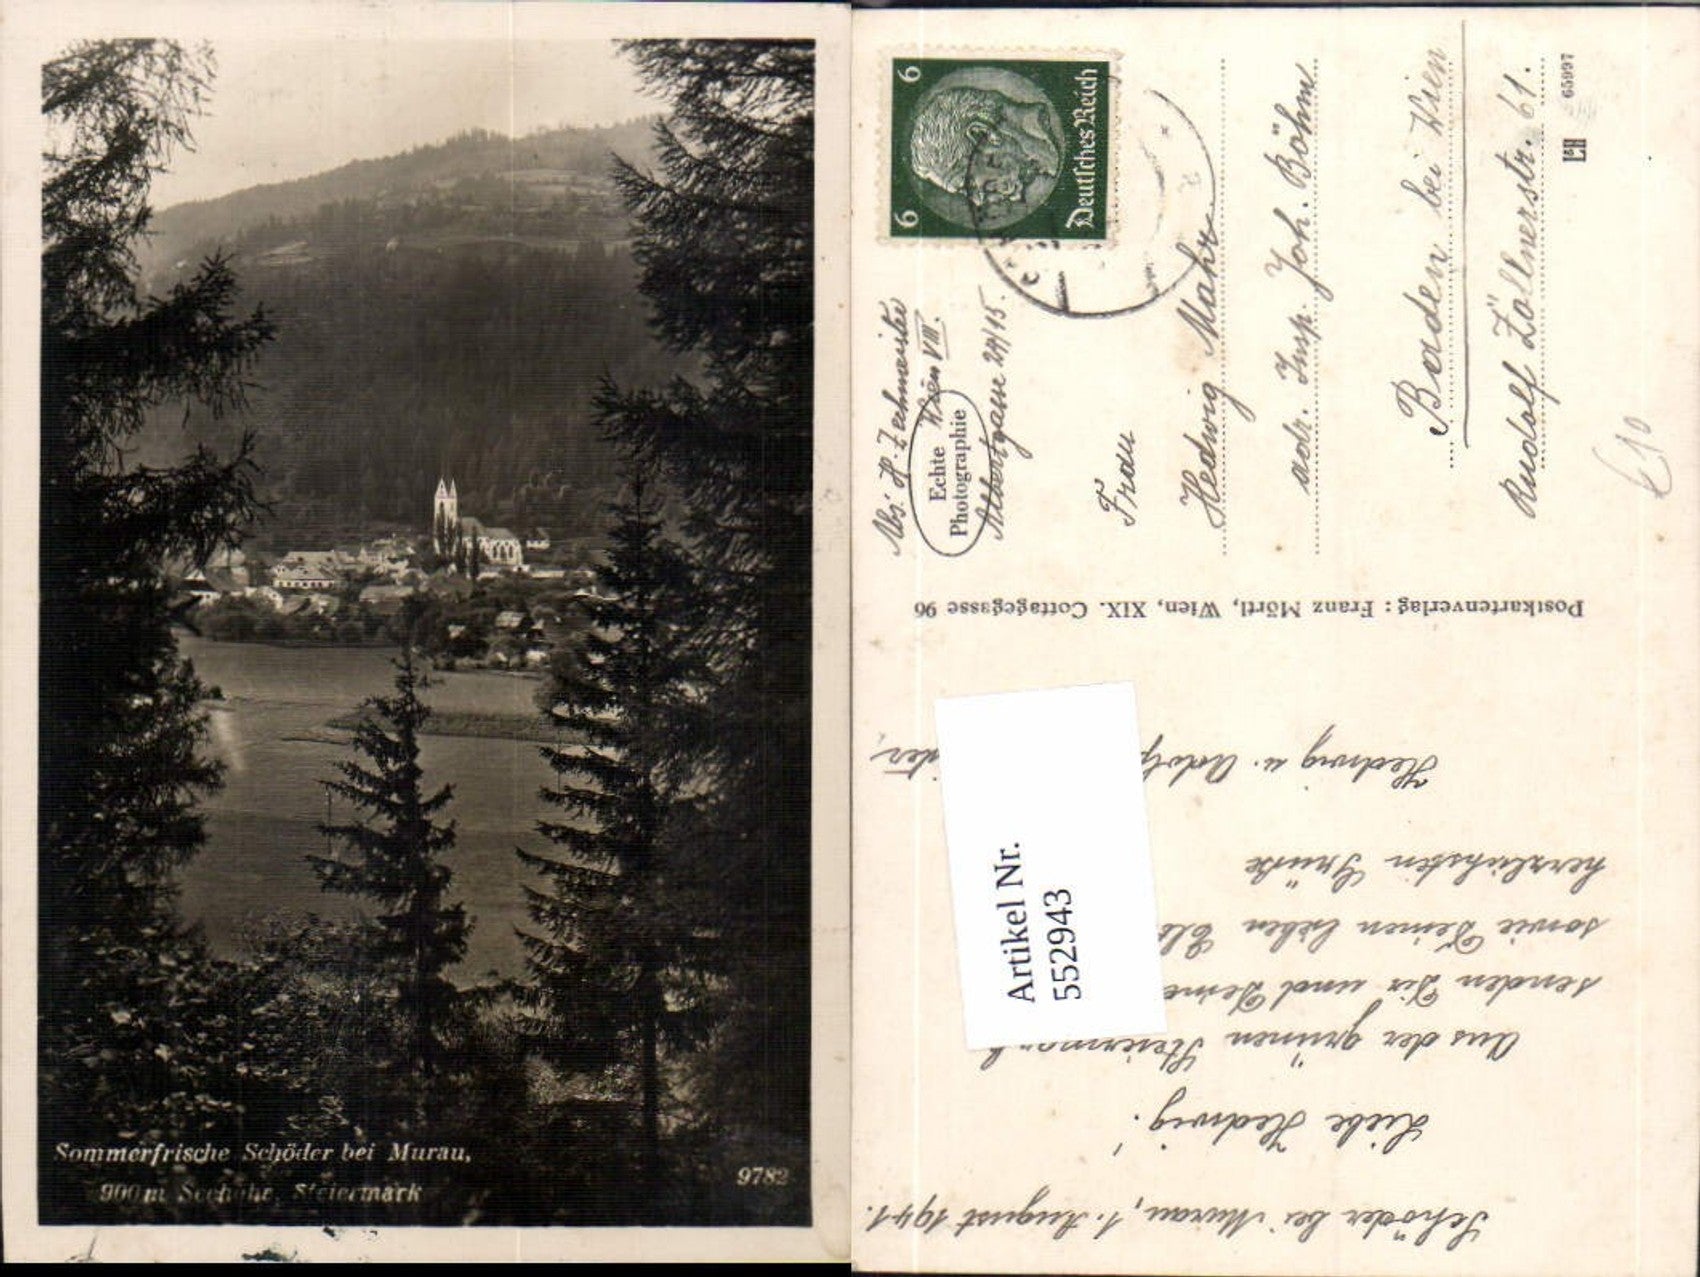 Sommerfrische Schöder bei Murau,
900 m Seehöhe, Steiermark
9782
6
6
Deutsches Reich
Abs. H. Zechmeister
Wien VIII.
Albertgasse 24/15.
Echte
Photographie
Frau
Hedwig Mahr
adr. Insp. Joh. Böhm
Baden bei Wien
Rudolf Zöllnerstr. 61.
65997
€10
Postkartenverlag: Franz Mörtl, Wien, XIX. Cottagegasse 96
Artikel Nr.
552943
Schöder bei Murau, 1. August 1941.
Liebe Hedwig!
Aus der grünen Steiermark
senden Dir und Deine
sowie Deinen lieben
herzlichsten Grüße
Hedwig u. Adolf